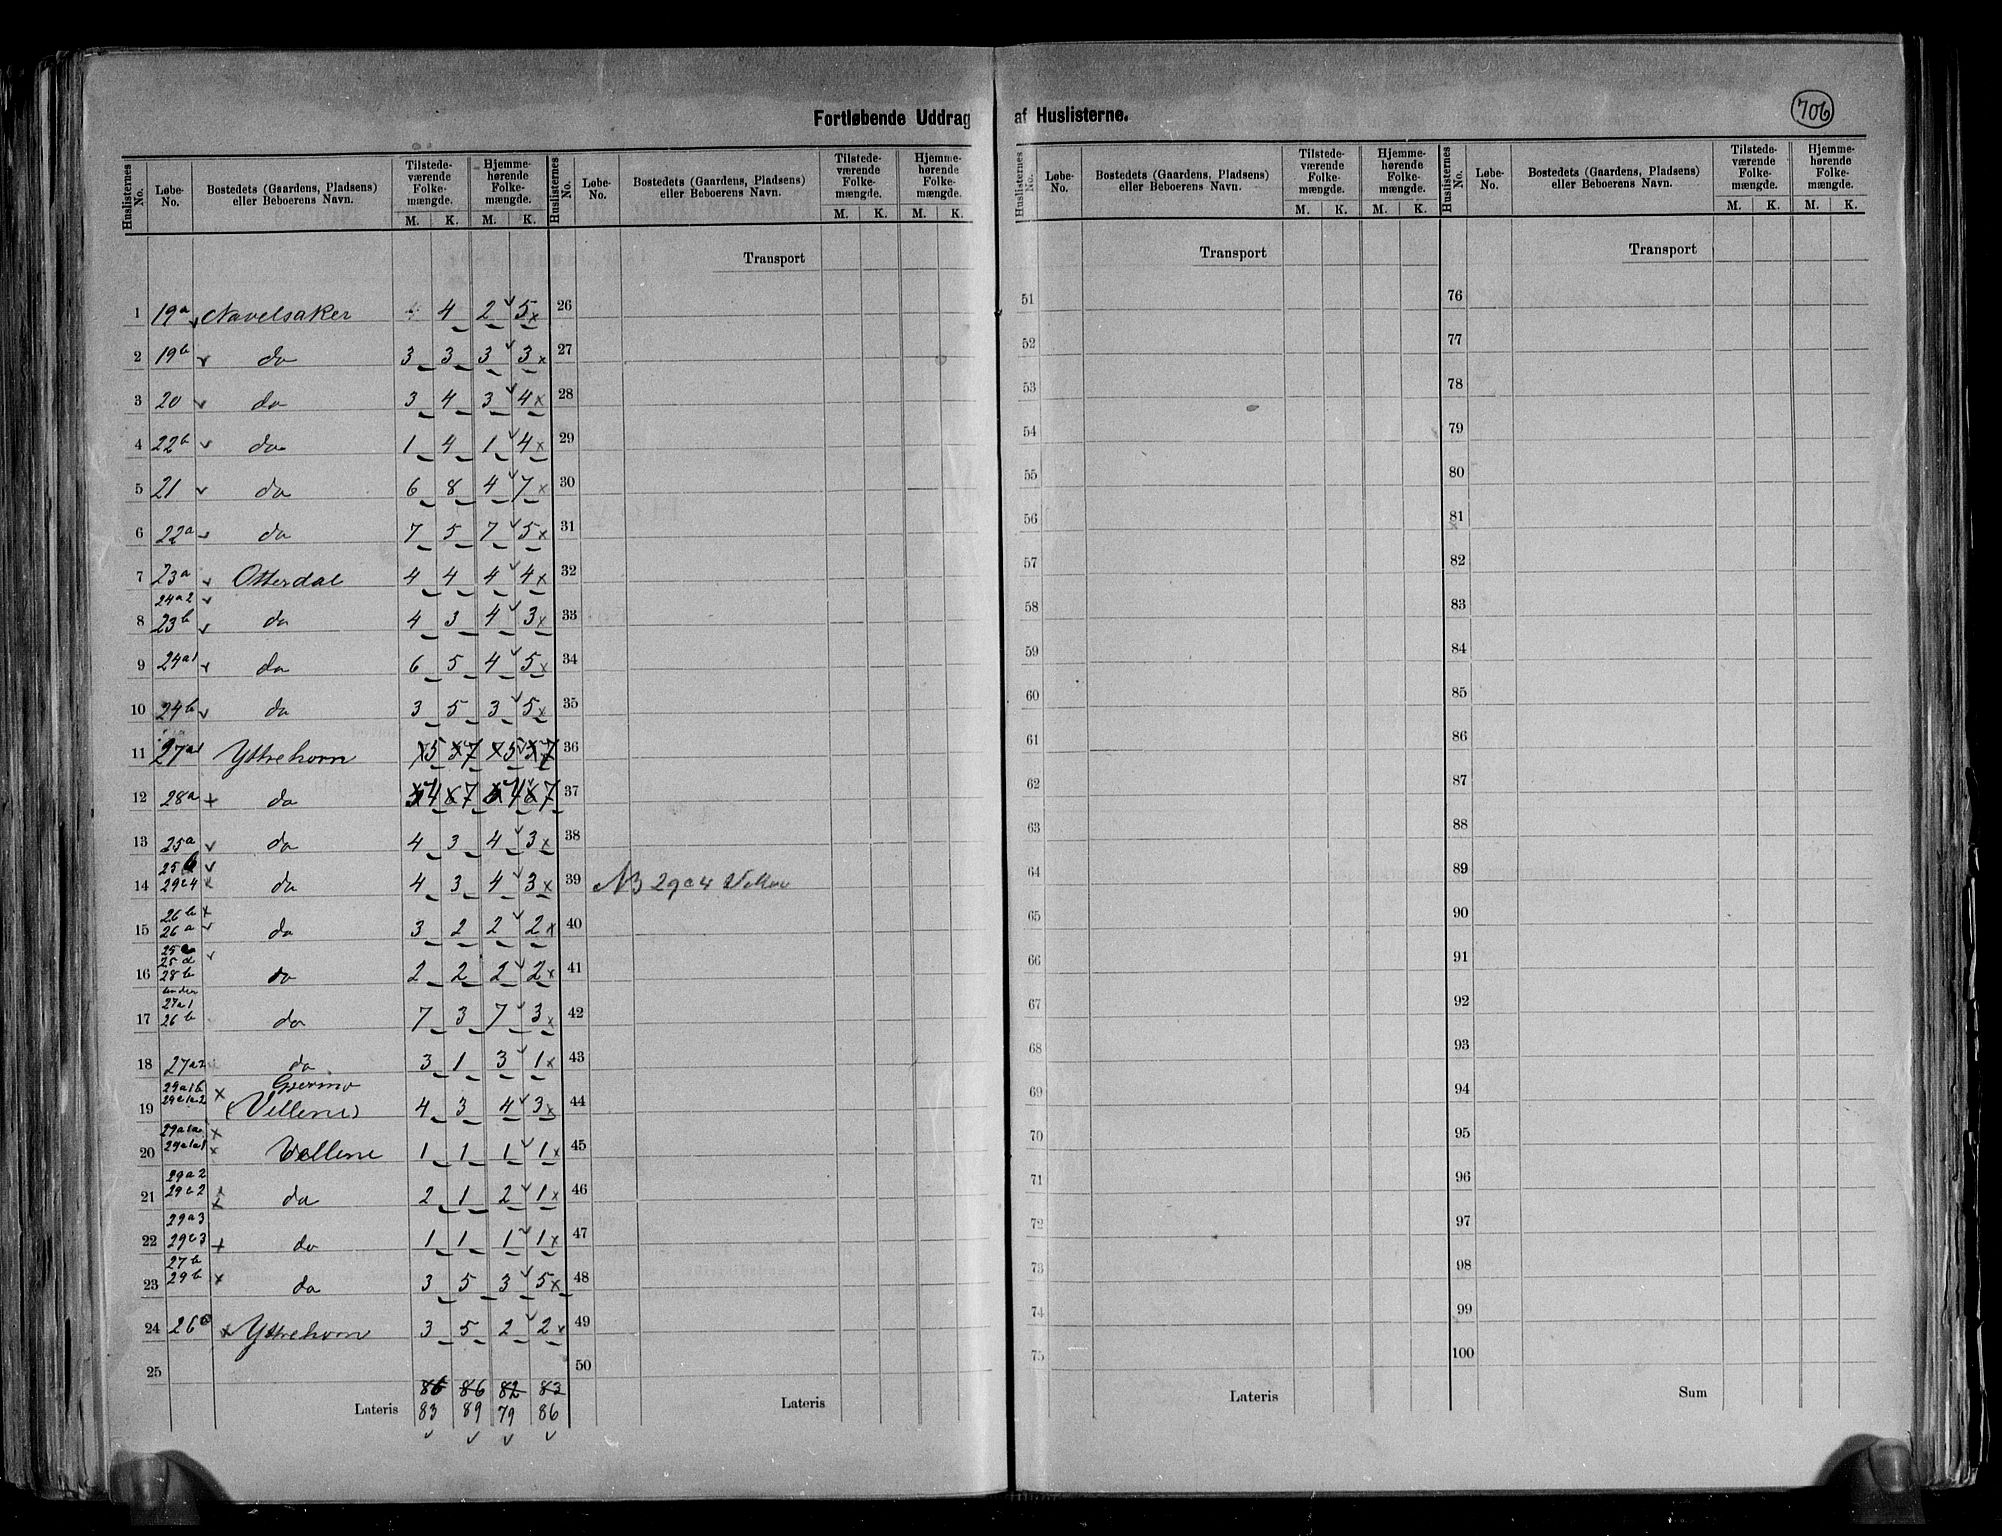 Fortløbende Uddrag af Huslisterne.
706
Huslisternes No. Løbe-No. Bostedets (Gaardens, Pladsens) eller Beboerens Navn. Tilstedeværende Folkemængde. Hjemmehørende Folkemængde. Huslisternes No. Løbe-No. Bostedets (Gaardens, Pladsens) eller Beboerens Navn. Tilstedeværende Folkemængde. Hjemmehørende Folkemængde. Huslisternes No. Løbe-No. Bostedets (Gaardens, Pladsens) eller Beboerens Navn. Tilstedeværende Folkemængde. Hjemmehørende Folkemængde. Huslisternes No. Løbe-No. Bostedets (Gaardens, Pladsens) eller Beboerens Navn. Tilstedeværende Folkemængde. Hjemmehørende Folkemængde.
M. K. M. K. M. K. M. K. M. K. M. K. M. K. M. K.
Transport Transport Transport
1 19a Navelsaker 4 4 2 5 26 51 76
2 19b do 3 3 3 3 27 52 77
3 20 do 3 4 3 4 28 53 78
4 22b do 1 4 1 4 29 54 79
5 21 do 6 8 4 7 30 55 80
6 22a do 7 5 7 5 31 56 81
7 23a Otterdal 4 4 4 4 32 57 82
24a2
8 23b do 4 3 4 3 33 58 83
9 24a1 do 6 5 4 5 34 59 84
10 24b do 3 5 3 5 35 60 85
11 27a1 Yttrehorn 5 7 5 7 36 61 86
12 28a do 4 7 4 7 37 62 87
13 25a do 4 3 4 3 38 63 88
25b
14 29c4 do 4 3 4 3 39 NB 29c4 64 89
26b
15 26a do 3 2 2 2 40 65 90
25d
16 28b do 2 2 2 2 41 66 91
under
27a1
17 26b do 7 3 7 3 42 67 92
18 27a2 do 3 1 3 1 43 68 93
29a1b
19 29c1a2 (Vellene) 4 3 4 3 44 69 94
29a1a
20 29a1a1 Vellene 1 1 1 1 45 70 95
29a2
21 29c2 do 2 1 2 1 46 71 96
29a3
22 29c3 do 1 1 1 1 47 72 97
27b
23 29b do 3 5 3 5 48 73 98
24 26c Yttrehorn 3 5 2 2 49 74 99
25 50 75 100
86 86 82 83
Lateris 83 89 79 86 Lateris Lateris Sum